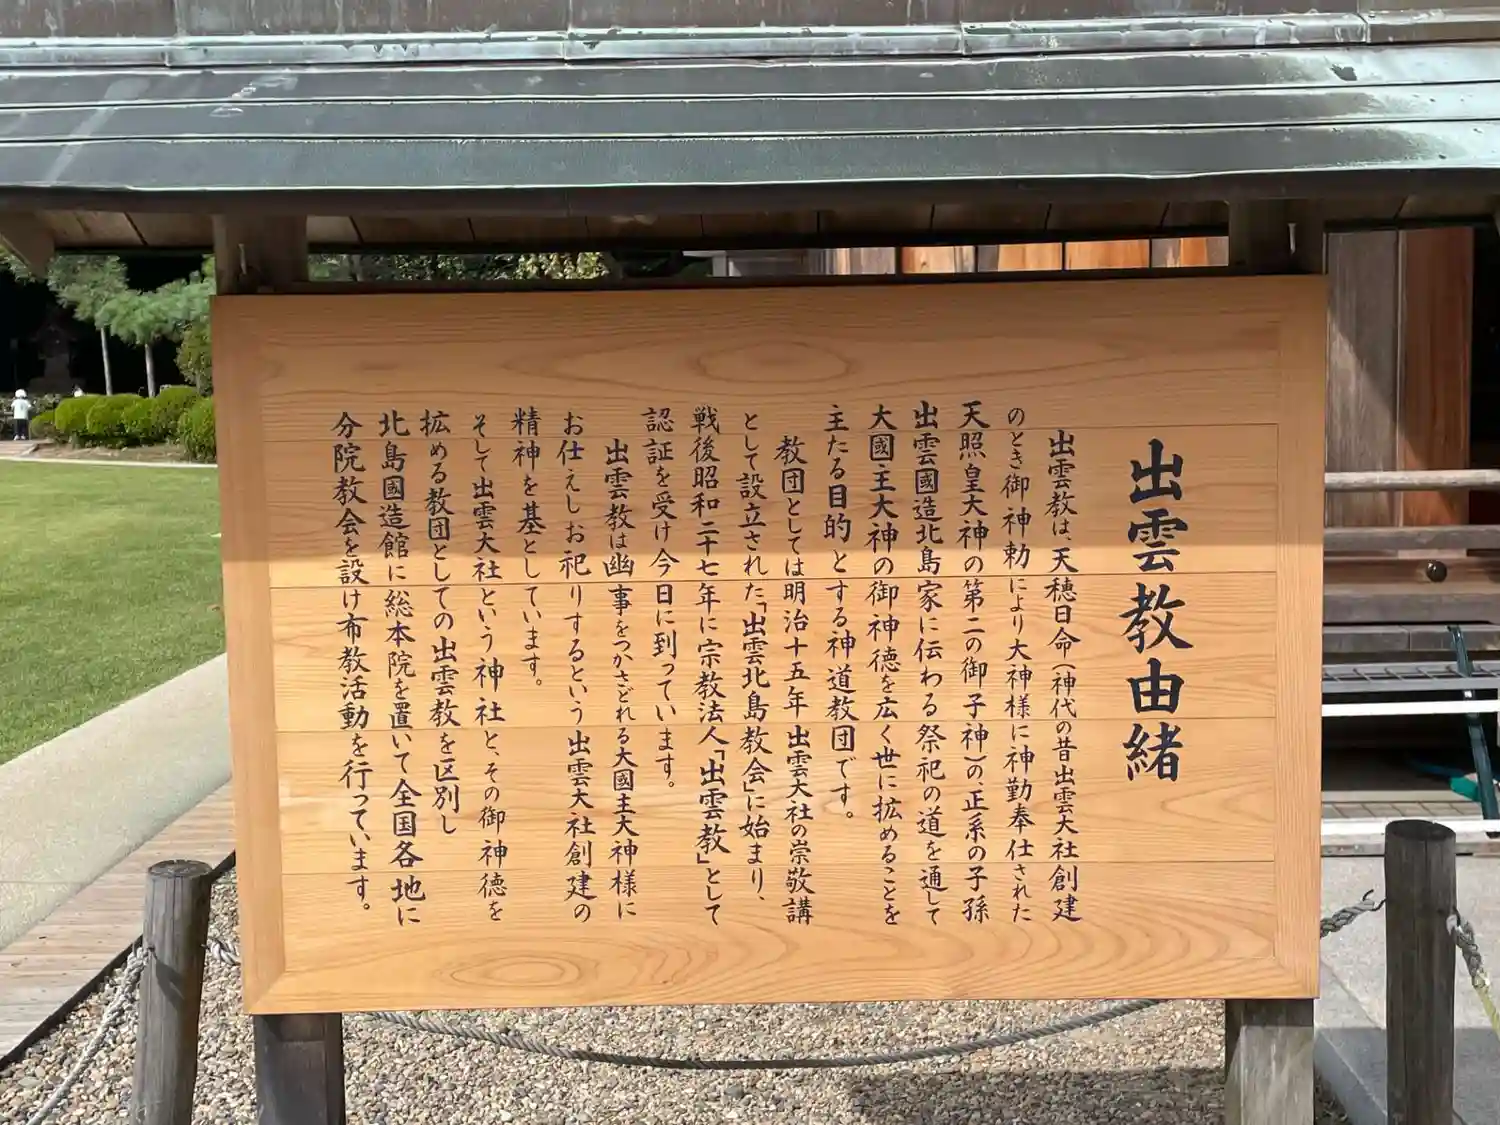 出雲教由緒
出雲教は、天穂日命（神代の昔出雲大社創建
のとき御神勅により大神様に神勤奉仕された
天照皇大神の第二の御子神）の、正系の子孫
出雲國造北島家に伝わる祭祀の道を通して
大國主大神の御神徳を広く世に拡めることを
主たる目的とする神道教団です。
教団としては明治十五年出雲大社の崇敬講
として設立された「出雲北島教会」に始まり、
戦後昭和二十七年に宗教法人「出雲教」として
認証を受け今日に到っています。
出雲教は幽事をつかさどれる大國主大神様に
お仕えしお祀りするという出雲大社創建の
精神を基としています。
そして出雲大社という神社と、その御神徳を
拡める教団としての出雲教を区別し
北島國造館に総本院を置いて全国各地に
分院教会を設け布教活動を行っています。